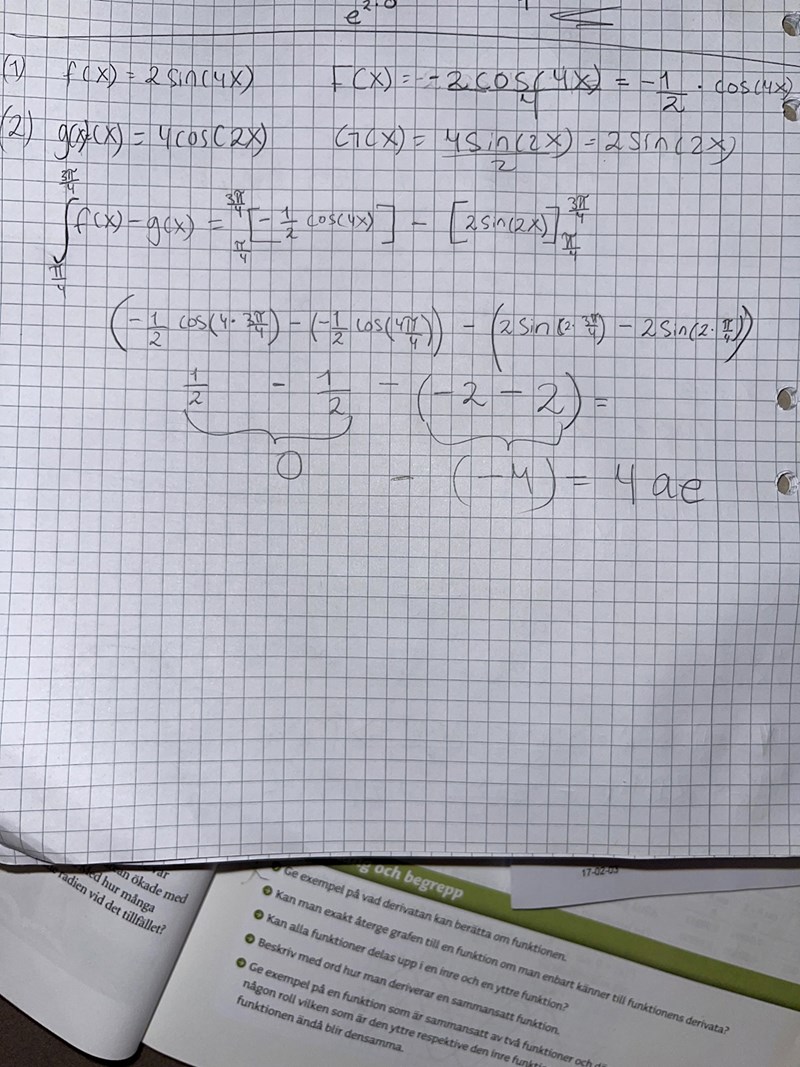 e^{2·0}
(1) f(x) = 2 sin(4x) F(x) = -2 cos(4x)/4 = -1/2 · cos(4x)
(2) g(x) = 4cos(2x) G(x) = 4 sin(2x)/2 = 2 sin(2x)
∫_{π/4}^{3π/4} f(x) - g(x) = _{π/4}^{3π/4}[-1/2 cos(4x)] - [2 sin(2x)]_{π/4}^{3π/4}
(-1/2 cos(4·3π/4) - (-1/2 cos(4π/4))) - (2 sin(2·3π/4) - 2 sin(2·π/4))
1/2 - 1/2 - (-2 - 2) =
0 - (-4) = 4 ae
var
an ökade med
Med hur många
radien vid det tillfället?
g och begrepp
17-02-03
Ge exempel på vad derivatan kan berätta om funktionen.
Kan man exakt återge grafen till en funktion om man enbart känner till funktionens derivata?
Kan alla funktioner delas upp i en inre och en yttre funktion?
Beskriv med ord hur man deriverar en sammansatt funktion.
Ge exempel på en funktion som är sammansatt av två funktioner och
någon roll vilken som är den yttre respektive den inre
funktionen ändå blir densamma.